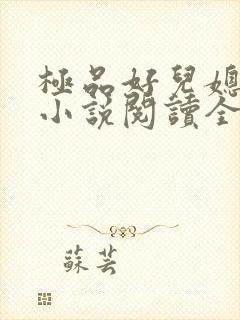 極品好兒媳
小說閱讀全
蘇芸